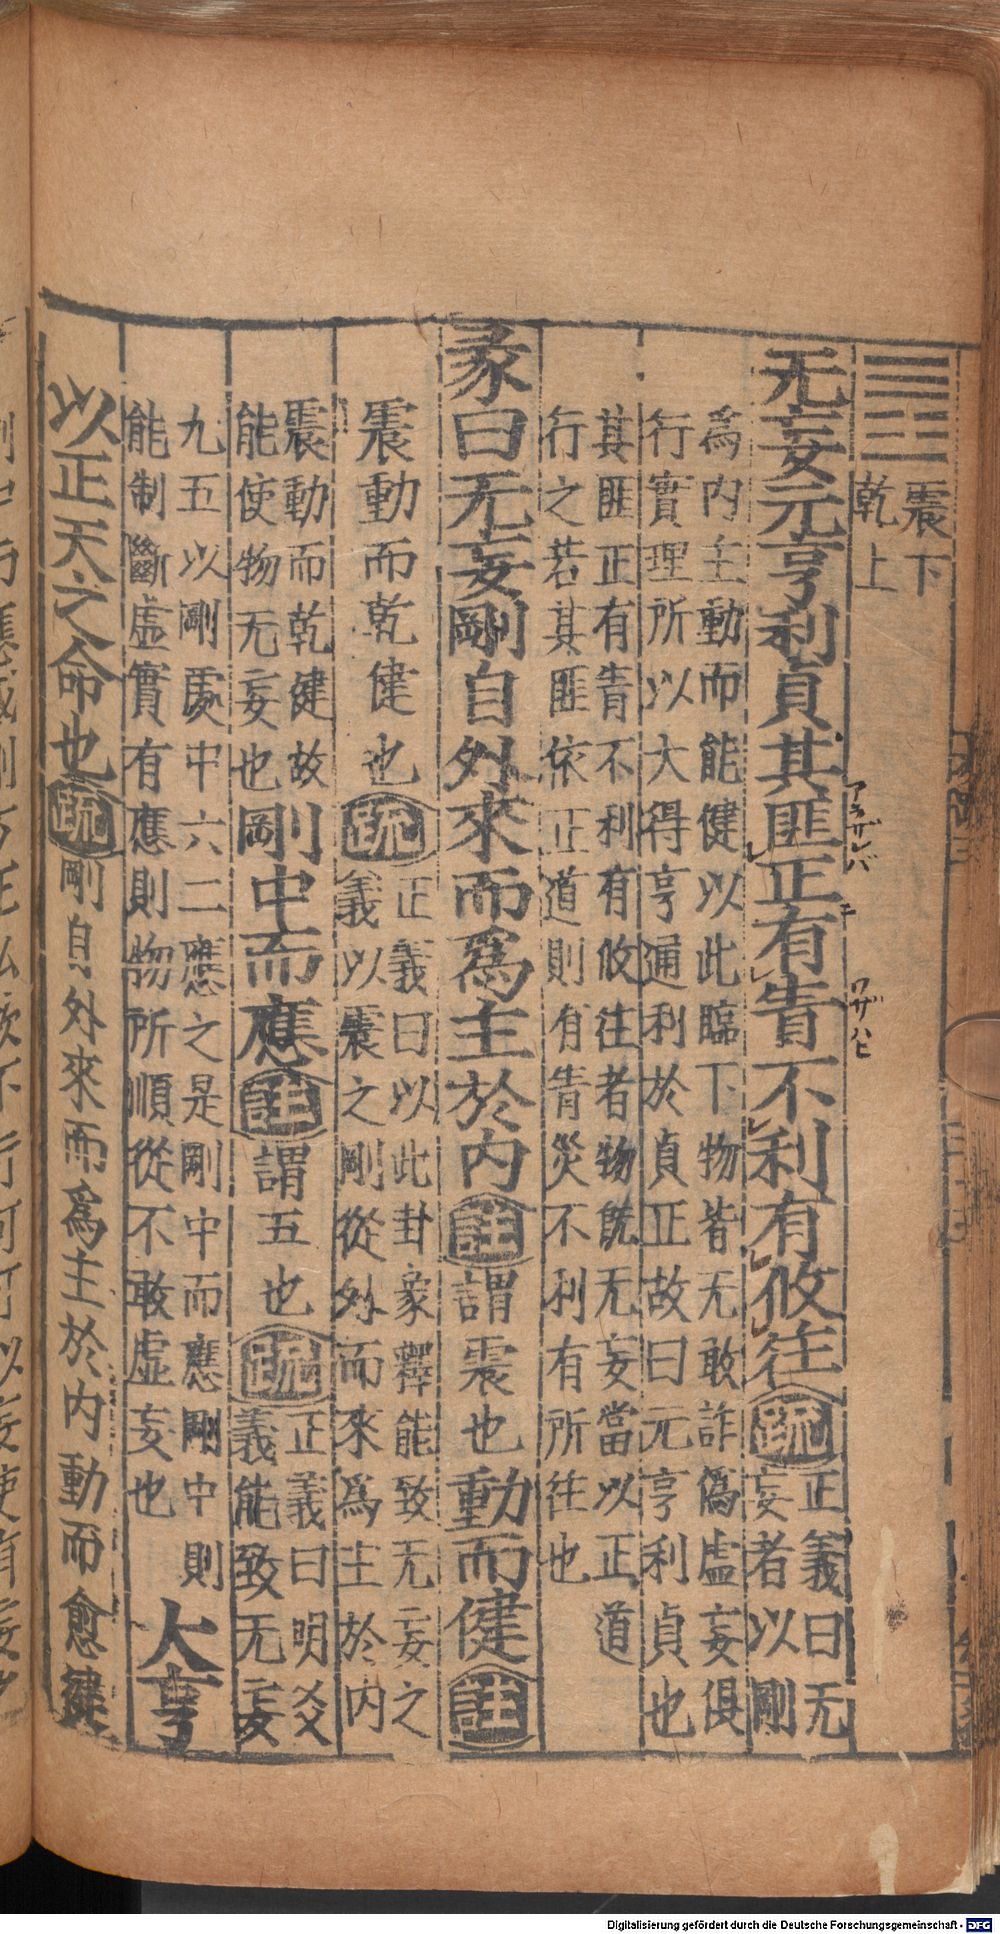 震下
乾上
无妄元亨利貞其匪正有眚不利有攸往疏正義曰无
妄者以剛
爲內主動而能健以此臨下物皆无敢詐僞虛妄俱
行實理所以大得亨通利於貞正故曰元亨利貞也
其匪正有眚不利有攸往者物旣无妄當以正道
行之若其匪依正道則有眚災不利有所往也
彖曰无妄剛自外來而爲主於內註謂震也動而健註
震動而乾健也疏正義曰以此卦彖釋能致无妄之
義以震之剛從外而來爲主於內
震動而乾健故
能使物无妄也剛中而應註謂五也疏正義曰明爻
義能致无妄
九五以剛處中六二應之是剛中而應剛中則
能制斷虛實有應則物所順從不敢虛妄也大亨
以正天之命也疏剛自外來而爲主於內動而愈健
アラザレバ
ニ
ワザハヒ
Digitalisierung gefördert durch die Deutsche Forschungsgemeinschaft - DFG